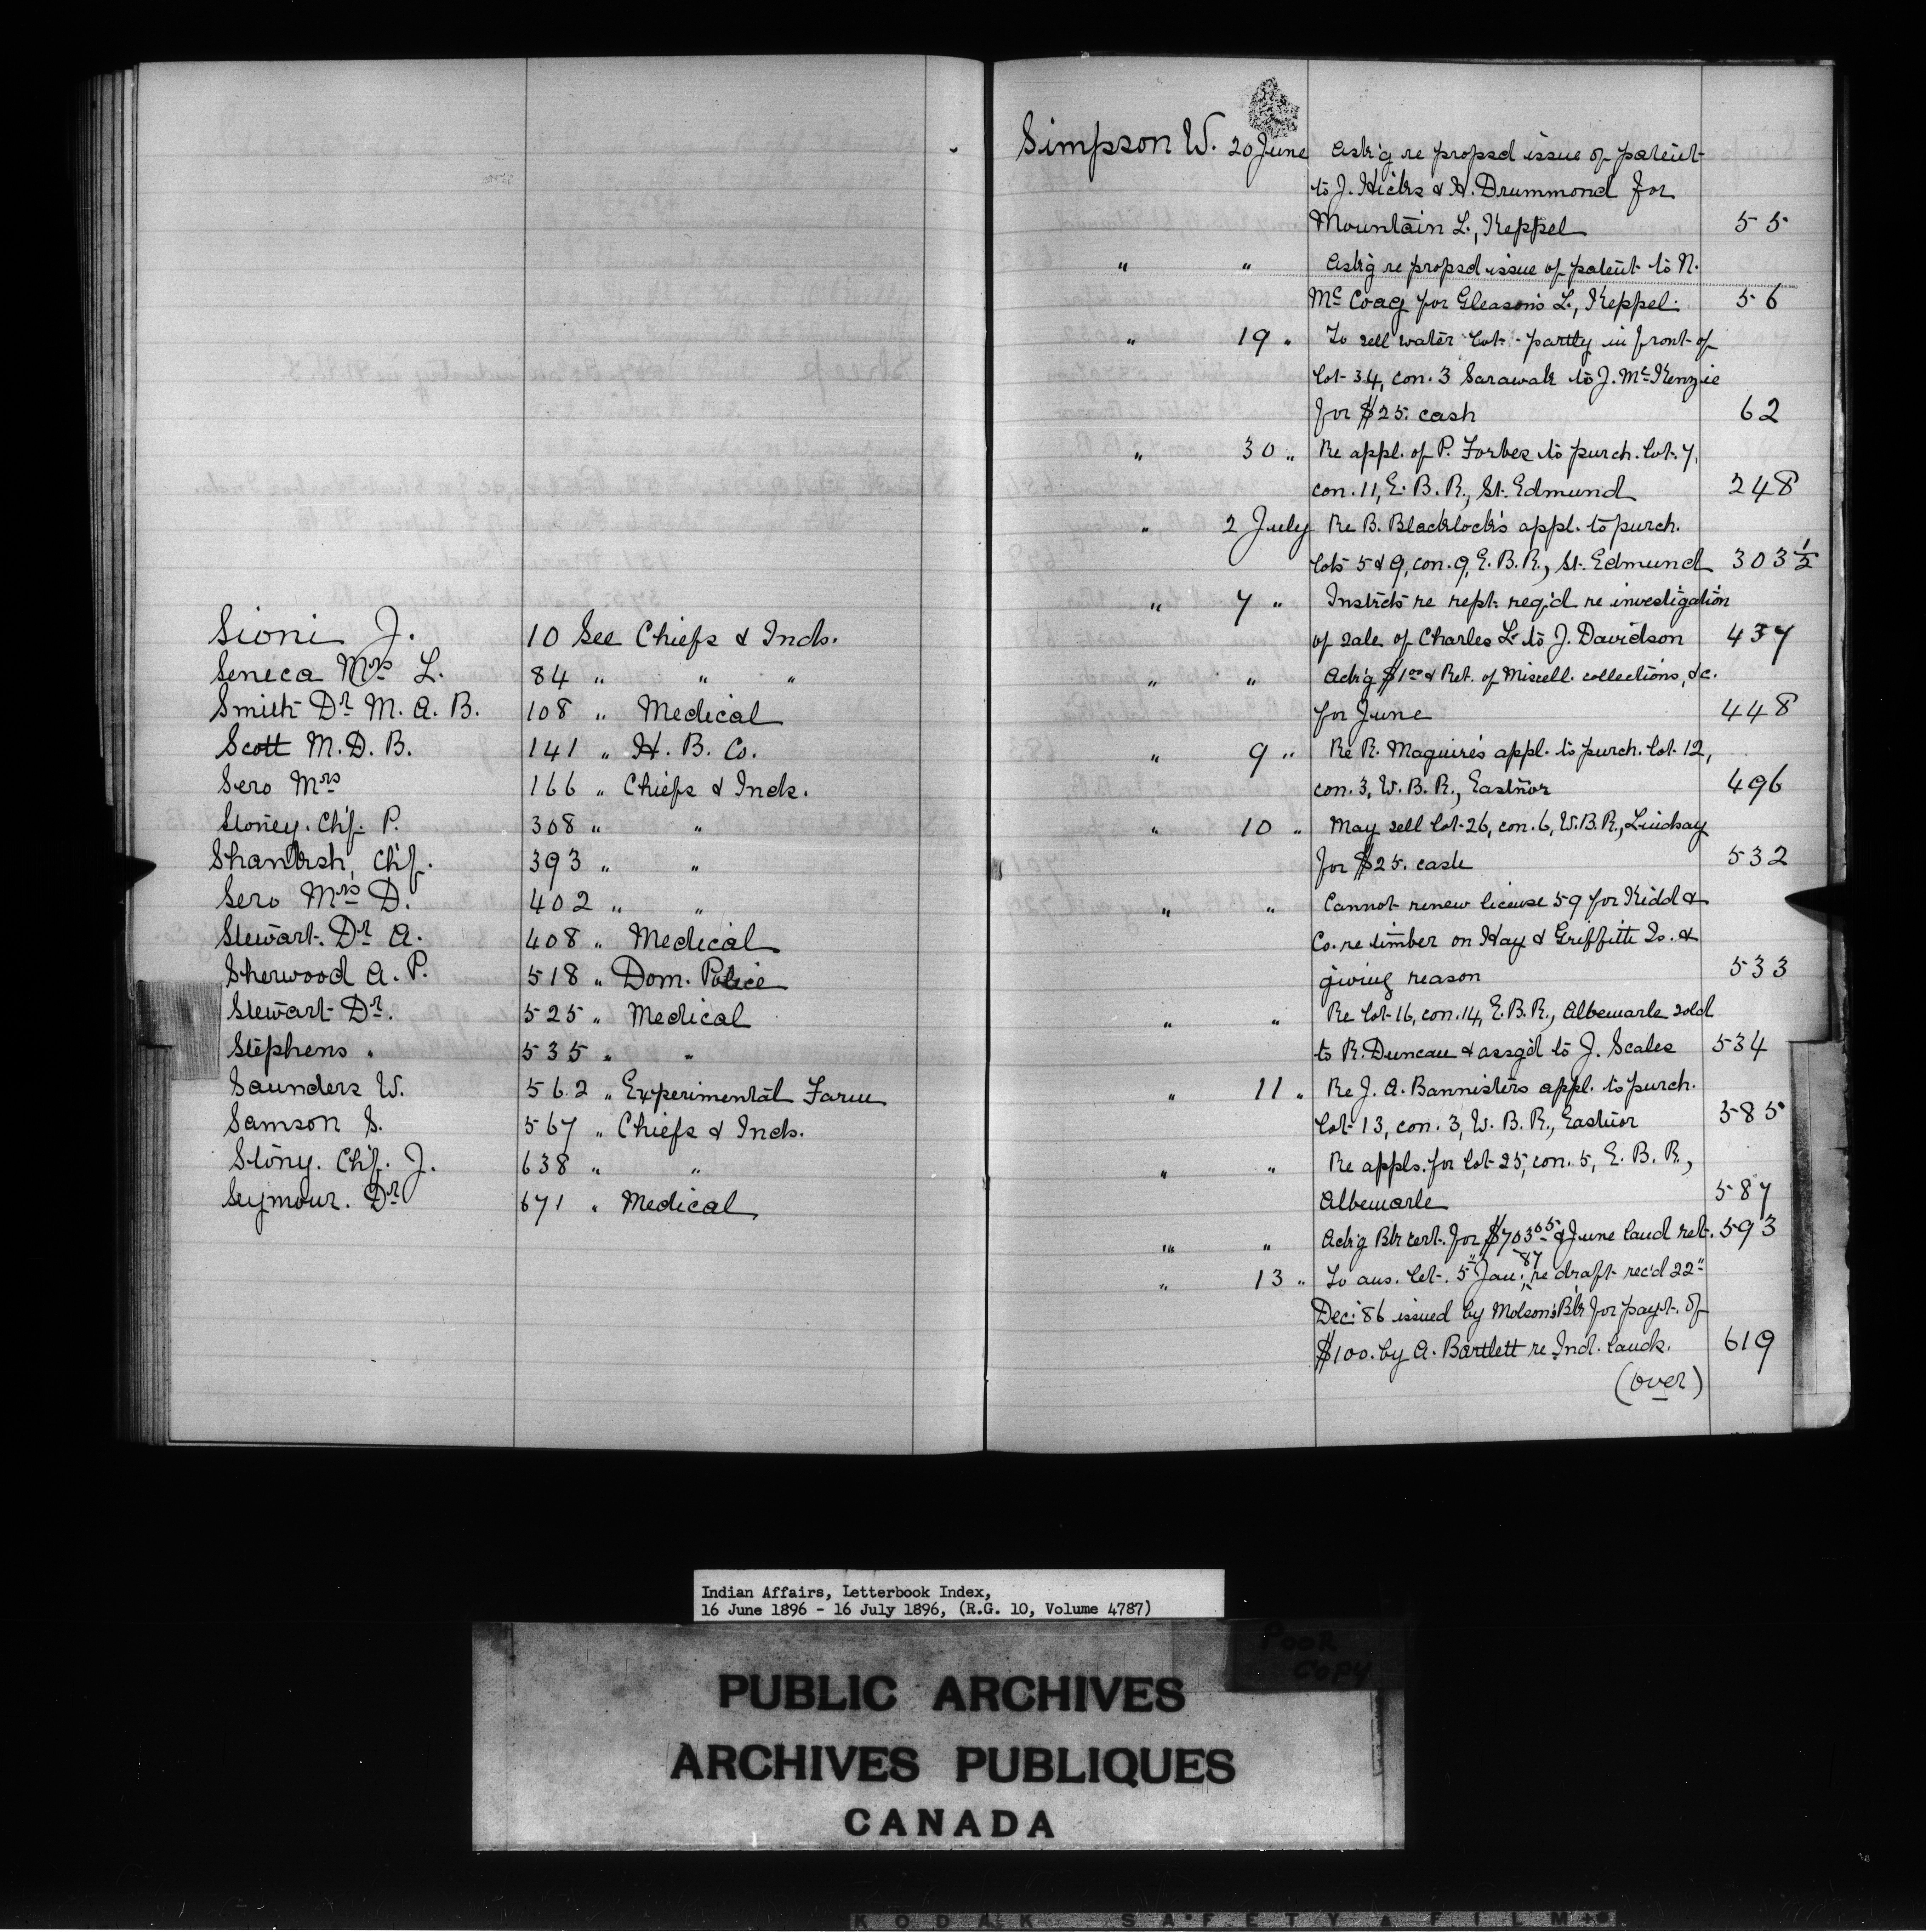 Sioni J. 10 See Chiefs & Inds.
Seneca Mrs L. 84 " " "
Smith Dr M. A. B. 108 " Medical
Scott M. D. B. 141 " H. B. Co.
Sero Mrs 166 " Chiefs & Inds.
Stoney. Chf. P. 308 " "
Chf. 393 " "
Sero Mrs D. 402 " "
Stewart. Dr A. 408 " Medical
Sherwood A. P. 518 " Dom. Police
Stewart Dr. 525 " Medical
Stephens " 535 " "
Saunders W. 562 " Experimental Farm
Samson S. 567 " Chiefs & Inds.
Stony. Chf. J. 638 " "
Seymour. Dr 671 " Medical
Simpson W. 20 June Ask'g re propsd issue of patent
to J. Hicks & H. Drummond for
Mountain L., Keppel 55
" " Ask'g re propsd issue of patent to N.
Mc Coag for Gleason's L., Keppel. 56
" 19 " To sell water lot partly in front of
lot 34, con. 3 Sarawak to J. McKenzie
for $25. cash 62
" 30 " Re appl. of P. Forbes to purch. lot 7,
con. 11, E. B. R., St. Edmund 248
" 2 July Re B. Blacklock's appl. to purch.
lots 5 & 9, con. 9, E. B. R., St. Edmund 303 1/2
" 7 " Instrcts re rept. req'd re investigation
of sale of Charles L. to J. Davidson 437
" " Ack'g $1.00 & Ret. of Miscell. collections, &c.
for June 448
" 9 " Re R. Maguire's appl. to purch. lot 12,
con. 3, W. B. R., Eastnor 496
" 10 " May sell lot 26, con. 6, W. B. R., Lindsay
for $25. cash 532
" " Cannot renew license 59 for Kidd &
Co. re timber on Hay & Griffith Is. &
giving reason 533
" " Re lot 16, con. 14, E. B. R., Albemarle sold
to R. Duncan & assg'd to J. Scales 534
" 11 " Re J. A. Bannister's appl. to purch.
lot 13, con. 3, W. B. R., Eastnor 585
" " Re appls. for lot 25, con. 5, E. B. R.,
Albemarle 587
" " Ack'g Bk cert. for $703.05 & June land ret. 593
" 13 " To ans. let. 5" Jan: 87 re draft rec'd 22"
Dec: 86 issued by Molson's Bk for payt. of
$100. by A. Bartlett re Ind. lands. 619
(over)
Indian Affairs, Letterbook Index,
16 June 1896 - 16 July 1896, (R.G. 10, Volume 4787)
POOR
COPY
PUBLIC ARCHIVES
ARCHIVES PUBLIQUES
CANADA
KODAK SAFETY FILM